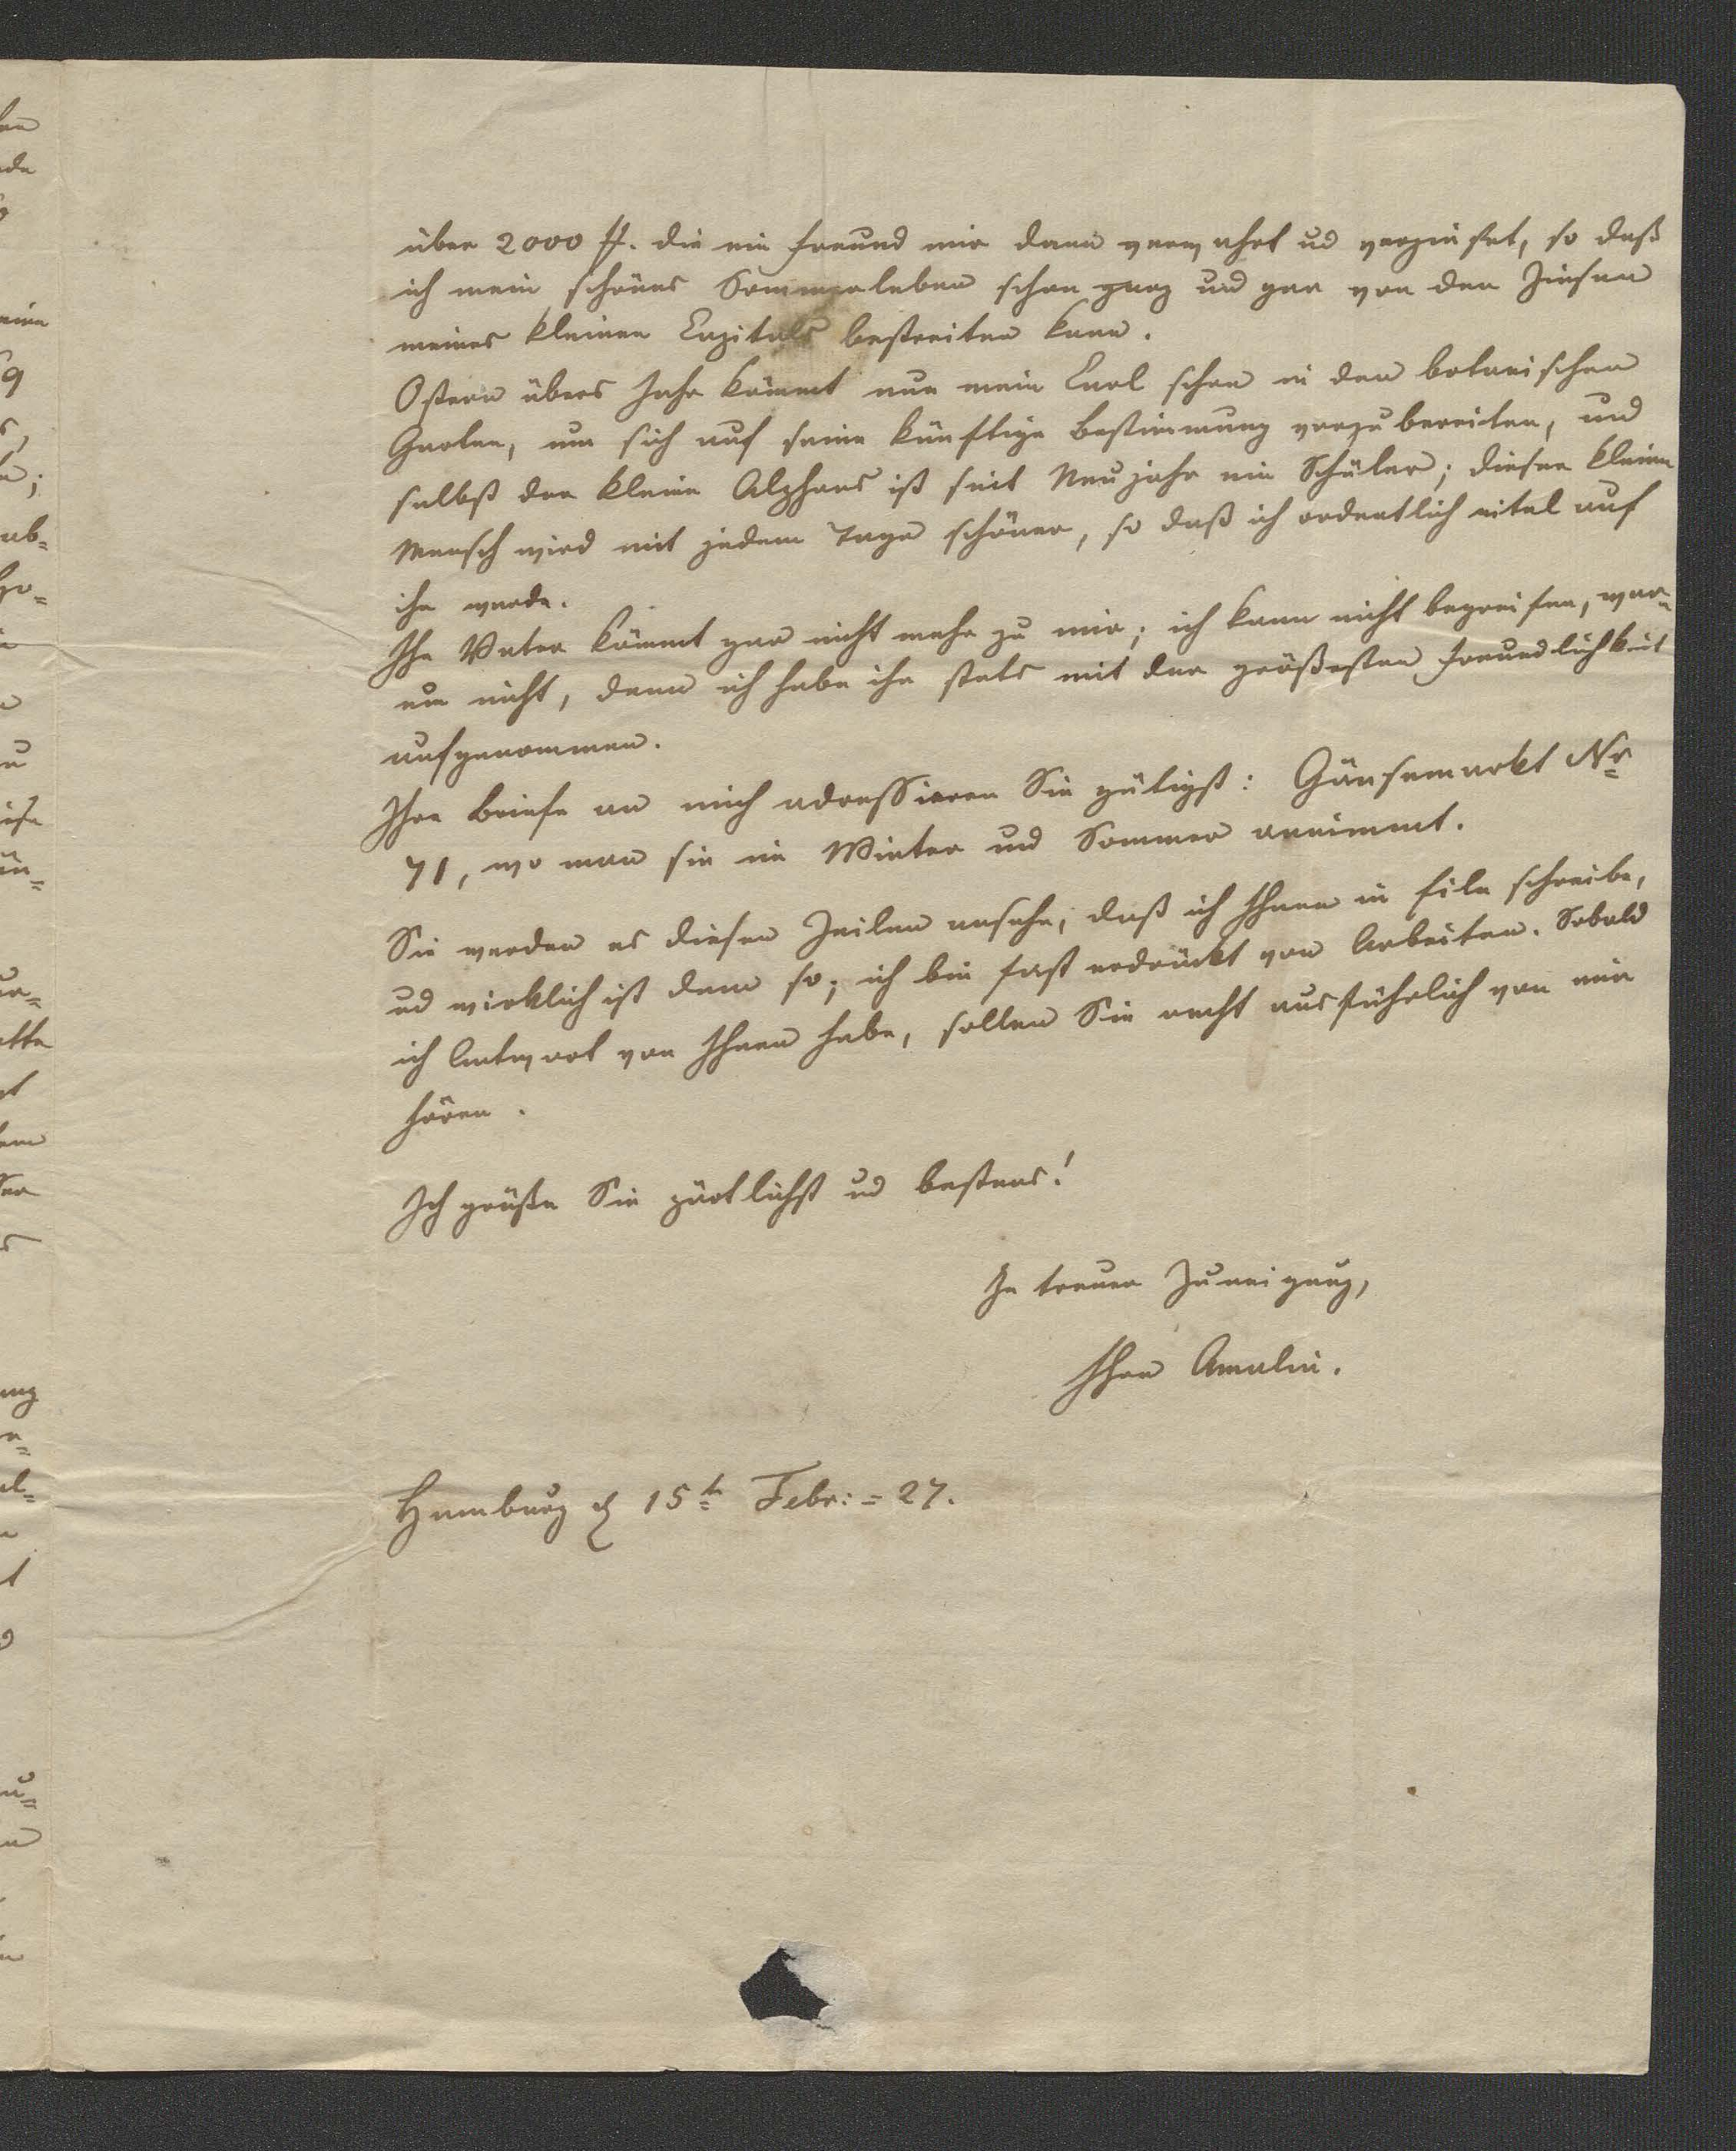 über 2000 ff. die ein Freund mir dann verwahrt ud verzinset, so daß
ich mein schönes Sommerleben schon ganz und gar von den Zinsen
meines kleinen Capitals bestreiten kann.
Ostern übers Jahr kömmt nun mein Carl schon in den botanischen
Garten, um sich auf seine künftige Bestimmung vorzubereiten, und
selbst der kleine Alphons ist seit Neujahr ein Schüler; dieser kleine
Mensch wird mit jedem Tage schöner, so daß ich ordentlich eitel auf
ihn werde.
Ihr Vater kömmt gar nicht mehr zu mir; ich kann nicht begreifen, war=
um nicht, denn ich habe ihn stets mit der größesten Freundlichkeit
aufgenommen.
Ihre Briefe an mich adressieren Sie gütigst: Gänsemarkt Nr
71, wo man sie im Winter und Sommer annimmt.
Sie werden es diesen Zeilen ansehn, daß ich Ihnen in Eile schreibe,
ud wirklich ist dem so; ich bin fast erdrückt von Arbeiten. Sobald
ich Antwort von Ihnen habe, sollen Sie recht ausführlich von mir
hören.
Ich grüße Sie zärtlichst ud bestens!
In treuer Zuneigung,
Ihre Amalie.
Hamburg d 15t Febr: = 27.